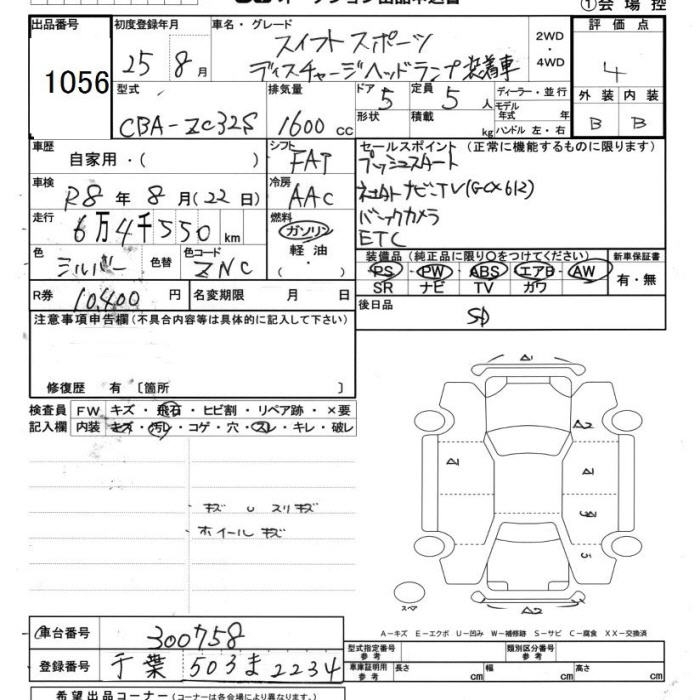 ①会場控
出品番号 1056
初度登録年月 25 8月
車名・グレード スイフトスポーツ
ディスチャージヘッドランプ装着車
2WD・4WD
評価点 4
外装 B 内装 B
型式 CBA-ZC32S
排気量 1600cc
ドア 5 定員 5人
形状 積載 kg
ディーラー・並行
モデル年式 年
ハンドル 左・右
車歴 自家用・( )
シフト FAT
セールスポイント(正常に機能するものに限ります)
プッシュスタート
車検 R8年8月(22日)
冷房 AAC
ナビTV(GCX612)
バックカメラ
ETC
走行 6万4千550km
燃料 ガソリン・軽油・( )
色 シルバー 色替 色コード ZNC
装備品(純正品に限り○をつけてください) 新車保証書
PS・PW・ABS・エアB・AW 有・無
SR ナビ TV カワ
R券 10,400円 名変期限 月 日
後日品 SD
注意事項申告欄(不具合内容等は具体的に記入して下さい)
修復歴 有〔箇所 〕
検査員 FW キズ・飛石・ヒビ割・リペア跡・×要
記入欄 内装 キズ・汚レ・コゲ・穴・スレ・キレ・破レ
A1
A2
A1
キズ U スリキズ
ホイールキズ
スペア
A2
A-キズ E-エクボ U-凹み W-補修跡 S-サビ C-腐食 XX-交換済
車台番号 300758
登録番号 千葉 503 ま 2234
型式指定番号 参考 類別区分番号 参考
車庫証明用 参考 長さ cm 幅 cm 高さ cm
希望出品コーナー(コーナーは各会場により異なります。)